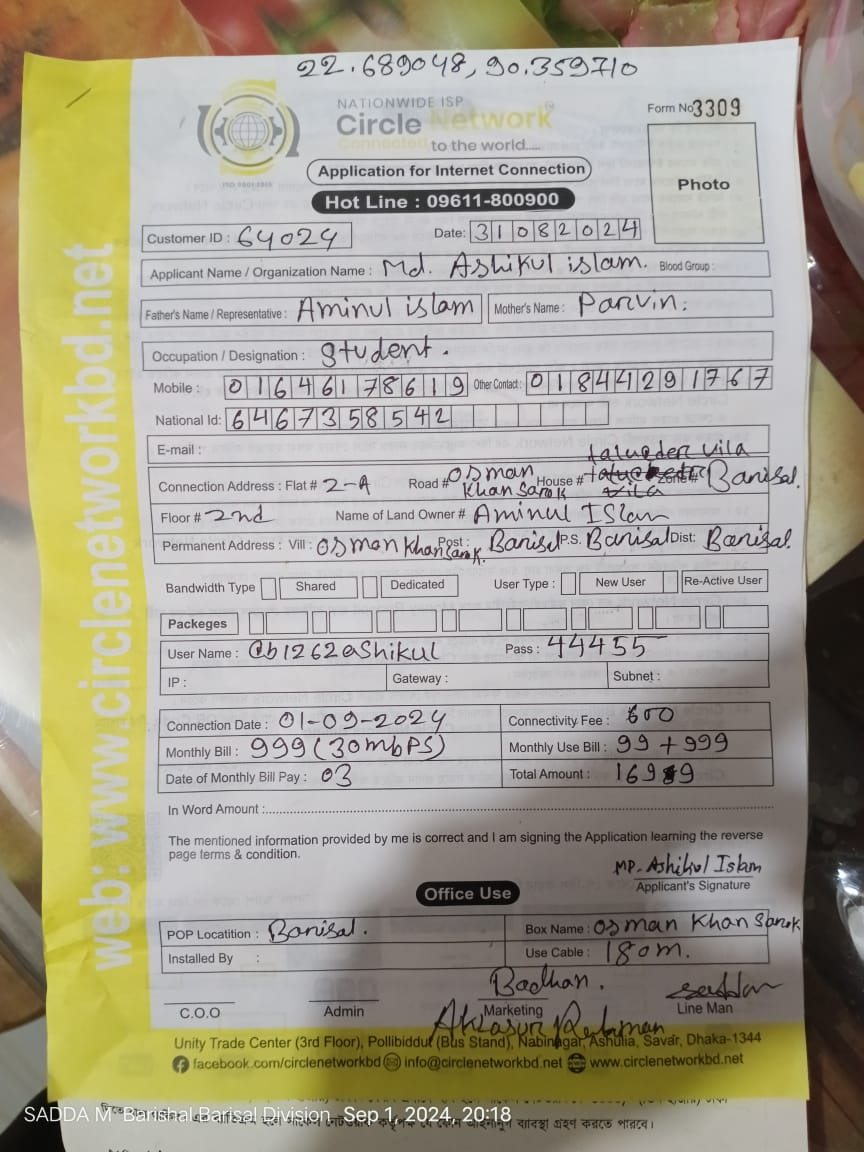 22.689048, 90.359710
NATIONWIDE ISP
Circle Network
Connected to the world....
ISO 9001:2015
Form No 3309
Application for Internet Connection
Photo
Hot Line : 09611-800900
Customer ID : 64024 Date: 31082024
Applicant Name / Organization Name : Md. Ashikul islam. Blood Group :
Father's Name / Representative : Aminul islam Mother's Name : Parvin.
Occupation / Designation : Student.
Mobile : 01646178619 Other Contact : 01844291767
National Id: 6467358542
E-mail :
Connection Address : Flat # 2-A Road # Osman Khan Sarok House # taluqder vila Zone # Barisal.
Floor # 2nd Name of Land Owner # Aminul Islam
Permanent Address : Vill : Osman Khan Sarok. Post : Barisal P.S. Barisal Dist: Barisal.
Bandwidth Type Shared Dedicated User Type : New User Re-Active User
Packeges
User Name : @b1262ashikul Pass : 44455
IP : Gateway : Subnet :
Connection Date : 01-09-2024 Connectivity Fee : 600
Monthly Bill : 999 (30mbPS) Monthly Use Bill : 99 + 999
Date of Monthly Bill Pay : 03 Total Amount : 1699
In Word Amount :
The mentioned information provided by me is correct and I am signing the Application learning the reverse
page terms & condition.
MD. Ashikul Islam
Applicant's Signature
Office Use
POP Locatition : Barisal. Box Name : Osman Khan Sarok
Installed By : Use Cable : 180m.
Badhan.
C.O.O Admin Marketing Line Man
Unity Trade Center (3rd Floor), Pollibiddut (Bus Stand), Nabinagar, Ashulia, Savar, Dhaka-1344
facebook.com/circlenetworkbd info@circlenetworkbd.net www.circlenetworkbd.net
web: www.circlenetworkbd.net
SADDA M Barishal Barisal Division Sep 1, 2024, 20:18
ব্যবস্থা গ্রহণ করতে পারবে।